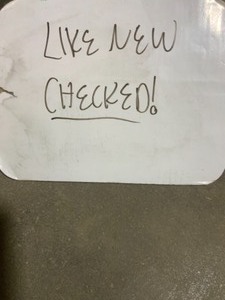 LIKE NEW
CHECKED!